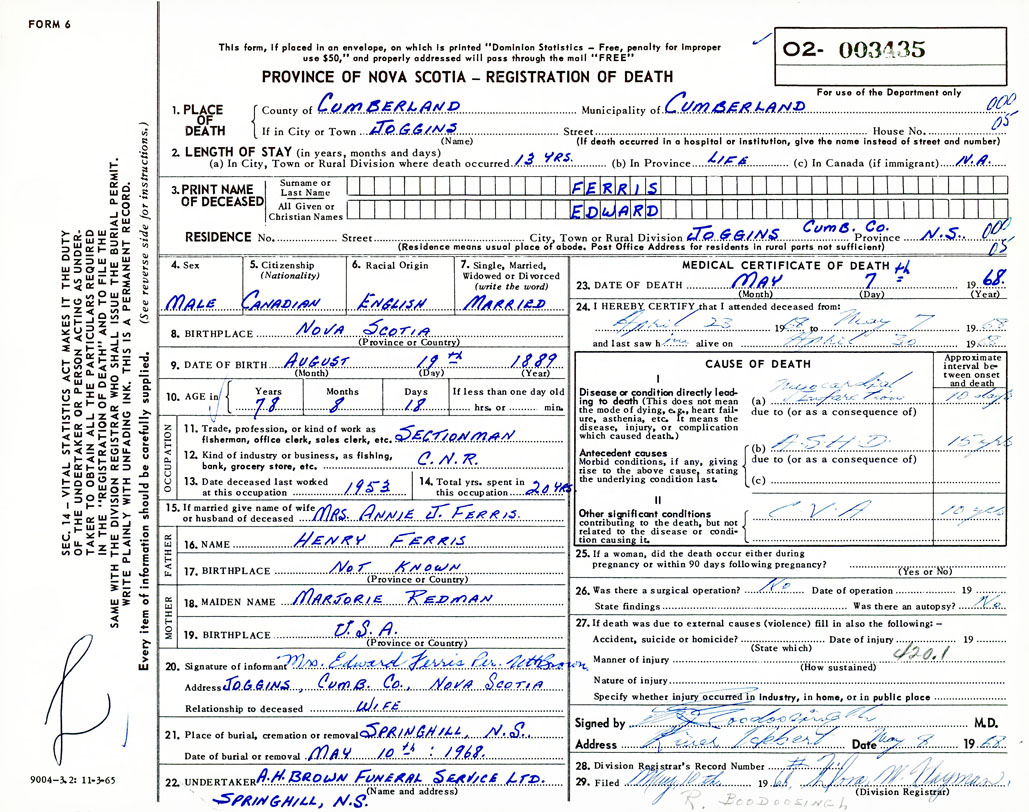 FORM 6
This form, if placed in an envelope, on which is printed "Dominion Statistics – Free, penalty for improper
use $50," and properly addressed will pass through the mail "FREE"
PROVINCE OF NOVA SCOTIA – REGISTRATION OF DEATH
02- 003435
For use of the Department only
1. PLACE OF DEATH
County of CUMBERLAND Municipality of CUMBERLAND 000
If in City or Town JOGGINS Street House No. 05
(Name) (If death occurred in a hospital or institution, give the name instead of street and number)
2. LENGTH OF STAY (in years, months and days)
(a) In City, Town or Rural Division where death occurred 13 YRS. (b) In Province LIFE (c) In Canada (if immigrant) N.A.
3. PRINT NAME OF DECEASED
Surname or Last Name FERRIS
All Given or Christian Names EDWARD
RESIDENCE No. Street City, Town or Rural Division JOGGINS CUMB. CO. Province N.S. 000
(Residence means usual place of abode. Post Office Address for residents in rural parts not sufficient) 05
4. Sex MALE
5. Citizenship (Nationality) CANADIAN
6. Racial Origin ENGLISH
7. Single, Married, Widowed or Divorced (write the word) MARRIED
8. BIRTHPLACE NOVA SCOTIA
(Province or Country)
9. DATE OF BIRTH AUGUST 19th 1889
(Month) (Day) (Year)
10. AGE in Years 78 Months 8 Days 18 If less than one day old hrs. or min.
OCCUPATION
11. Trade, profession, or kind of work as
fisherman, office clerk, sales clerk, etc. SECTIONMAN
12. Kind of industry or business, as fishing,
bank, grocery store, etc. C.N.R.
13. Date deceased last worked at this occupation 1953
14. Total yrs. spent in this occupation 20 YRS
15. If married give name of wife or husband of deceased MRS. ANNIE J. FERRIS.
FATHER
16. NAME HENRY FERRIS
17. BIRTHPLACE NOT KNOWN
(Province or Country)
MOTHER
18. MAIDEN NAME MARJORIE REDMAN
19. BIRTHPLACE U.S.A.
(Province or Country)
20. Signature of informant Mrs. Edward Ferris Per.
Address JOGGINS, CUMB. CO., NOVA SCOTIA
Relationship to deceased WIFE
21. Place of burial, cremation or removal SPRINGHILL, N.S.
Date of burial or removal MAY 10th : 1968.
22. UNDERTAKER A.H. BROWN FUNERAL SERVICE LTD.
(Name and address)
SPRINGHILL, N.S.
MEDICAL CERTIFICATE OF DEATH
23. DATE OF DEATH MAY 7th 1968.
(Month) (Day) (Year)
24. I HEREBY CERTIFY that I attended deceased from:
April 23 1968 to May 7 1968
and last saw him alive on April 30 1968
CAUSE OF DEATH
Approximate interval between onset and death
I
Disease or condition directly leading to death (This does not mean the mode of dying, e.g., heart failure, asthenia, etc. It means the disease, injury, or complication which caused death.)
(a) Myocardial Infarction 10 days
due to (or as a consequence of)
Antecedent causes
Morbid conditions, if any, giving rise to the above cause, stating the underlying condition last.
(b) A.S.H.D. 15 yrs
due to (or as a consequence of)
(c)
II
Other significant conditions
contributing to the death, but not related to the disease or condition causing it.
C.V.A 10 yrs
25. If a woman, did the death occur either during
pregnancy or within 90 days following pregnancy?
(Yes or No)
26. Was there a surgical operation? No Date of operation 19
State findings Was there an autopsy? No
27. If death was due to external causes (violence) fill in also the following: –
Accident, suicide or homicide? Date of injury 19
(State which) 420.1
Manner of injury
(How sustained)
Nature of injury
Specify whether injury occurred in industry, in home, or in public place
Signed by Boodoosingh M.D.
Address River Hebert Date May 8 1968
28. Division Registrar's Record Number
29. Filed May 19
(Division Registrar)
R. BOODOOSINGH
SEC. 14 – VITAL STATISTICS ACT MAKES IT THE DUTY
OF THE UNDERTAKER OR PERSON ACTING AS UNDER-
TAKER TO OBTAIN ALL THE PARTICULARS REQUIRED
IN THE "REGISTRATION OF DEATH" AND TO FILE THE
SAME WITH THE DIVISION REGISTRAR WHO SHALL ISSUE THE BURIAL PERMIT.
WRITE PLAINLY WITH UNFADING INK. THIS IS A PERMANENT RECORD.
Every item of information should be carefully supplied. (See reverse side for instructions.)
9004-3.2: 11-3-65